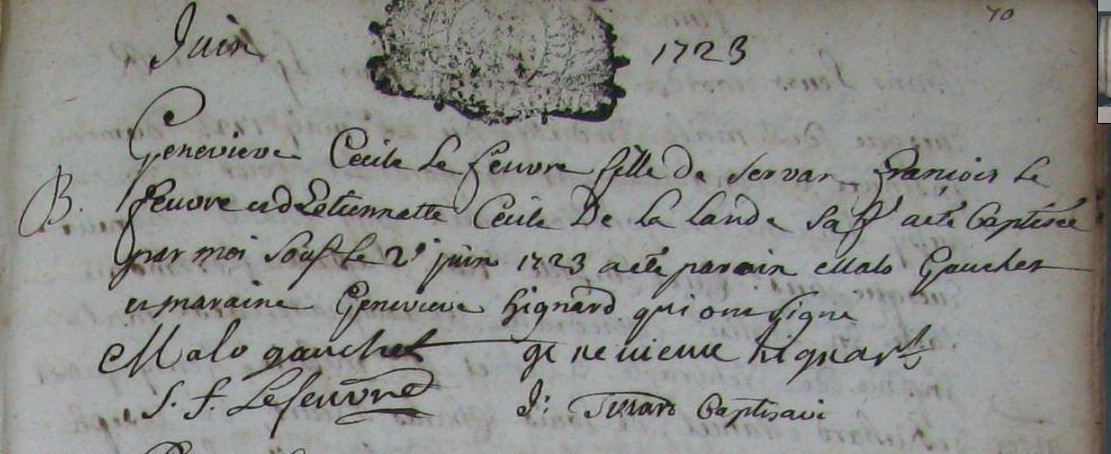 70
Juin 1723
Genevieve Cecile le feuvre fille de Servan francois le
B. feuvre et d'Etiennette Cecile De la lande sa ff a ete baptisée
par moi Souss. le 2e juin 1723 a ete parain Malo Gauchet
et maraine Genevieve hignard qui ont signe
Malo gauchet genevieve hignard
S. f. Lefeuvre J: baptisavi